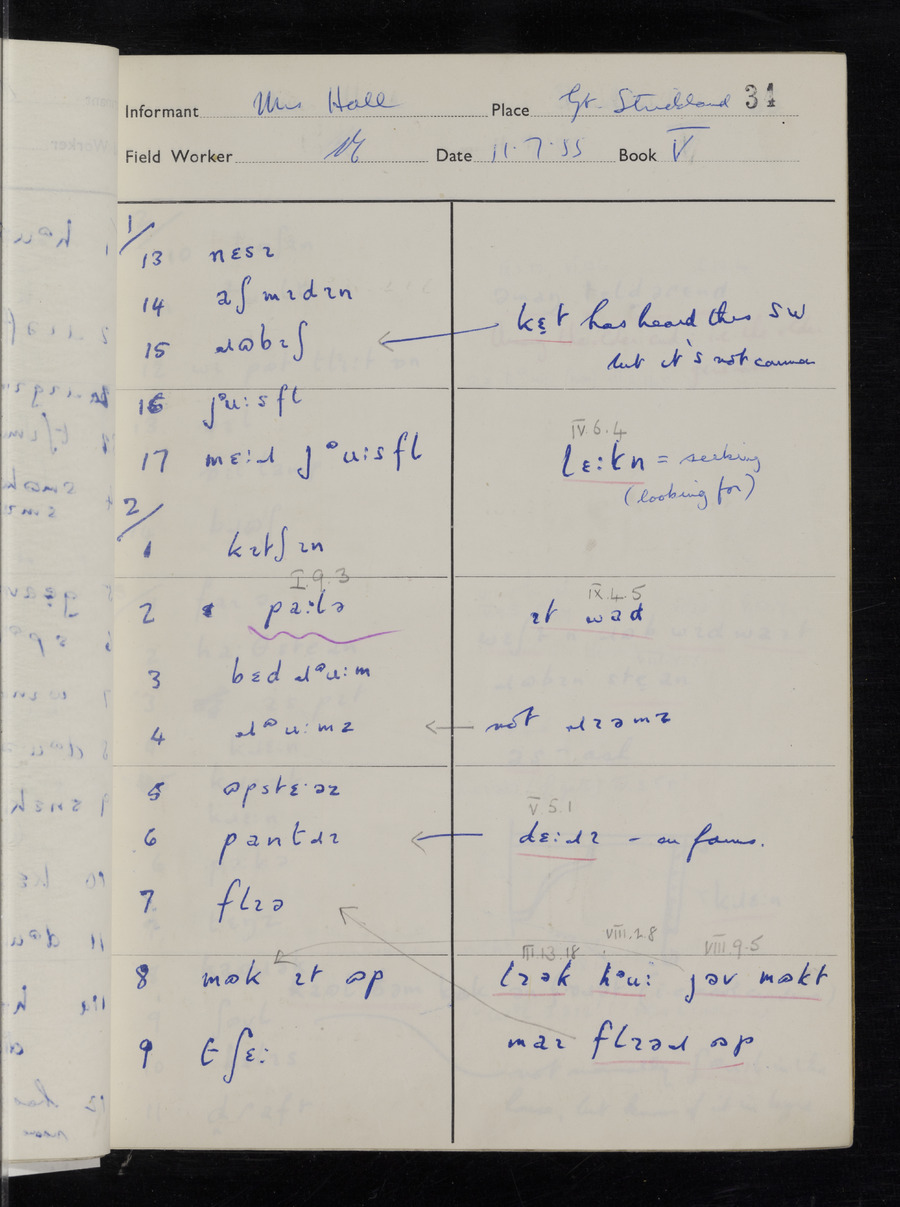 Informant Mrs Hall Place Gt. Strickland 31
Field Worker Date 11.7.55 Book V
1/
13 nɛsɪ
14 aʃ mɪdɪn
15 ɹɷbɪʃ
kɛt has heard this sw
but it's not common
16 jᶷu:sfl
17 mɛ:d jᶷu:sfl
IV.6.4
lɛ:kn = seeking
(looking for)
2/
1 kɪtʃɪn
I.9.3
2 pa:lə
IX.4.5
ɪt wad
3 bɛd ɹᶷu:m
4 ɹᶷu:mz
not ɹɪəmz
5 ɷpstɛ·əz
V.5.1
6 pantɹɪ
dɛ:ɹɪ - on farms.
7 flɪə
III.13.18 VIII.9.5
8 mak ɪt ɷp
lɪək hᶷu: jəv makt
9 tʃɛ:
maɪ flɪəɹ ɷp